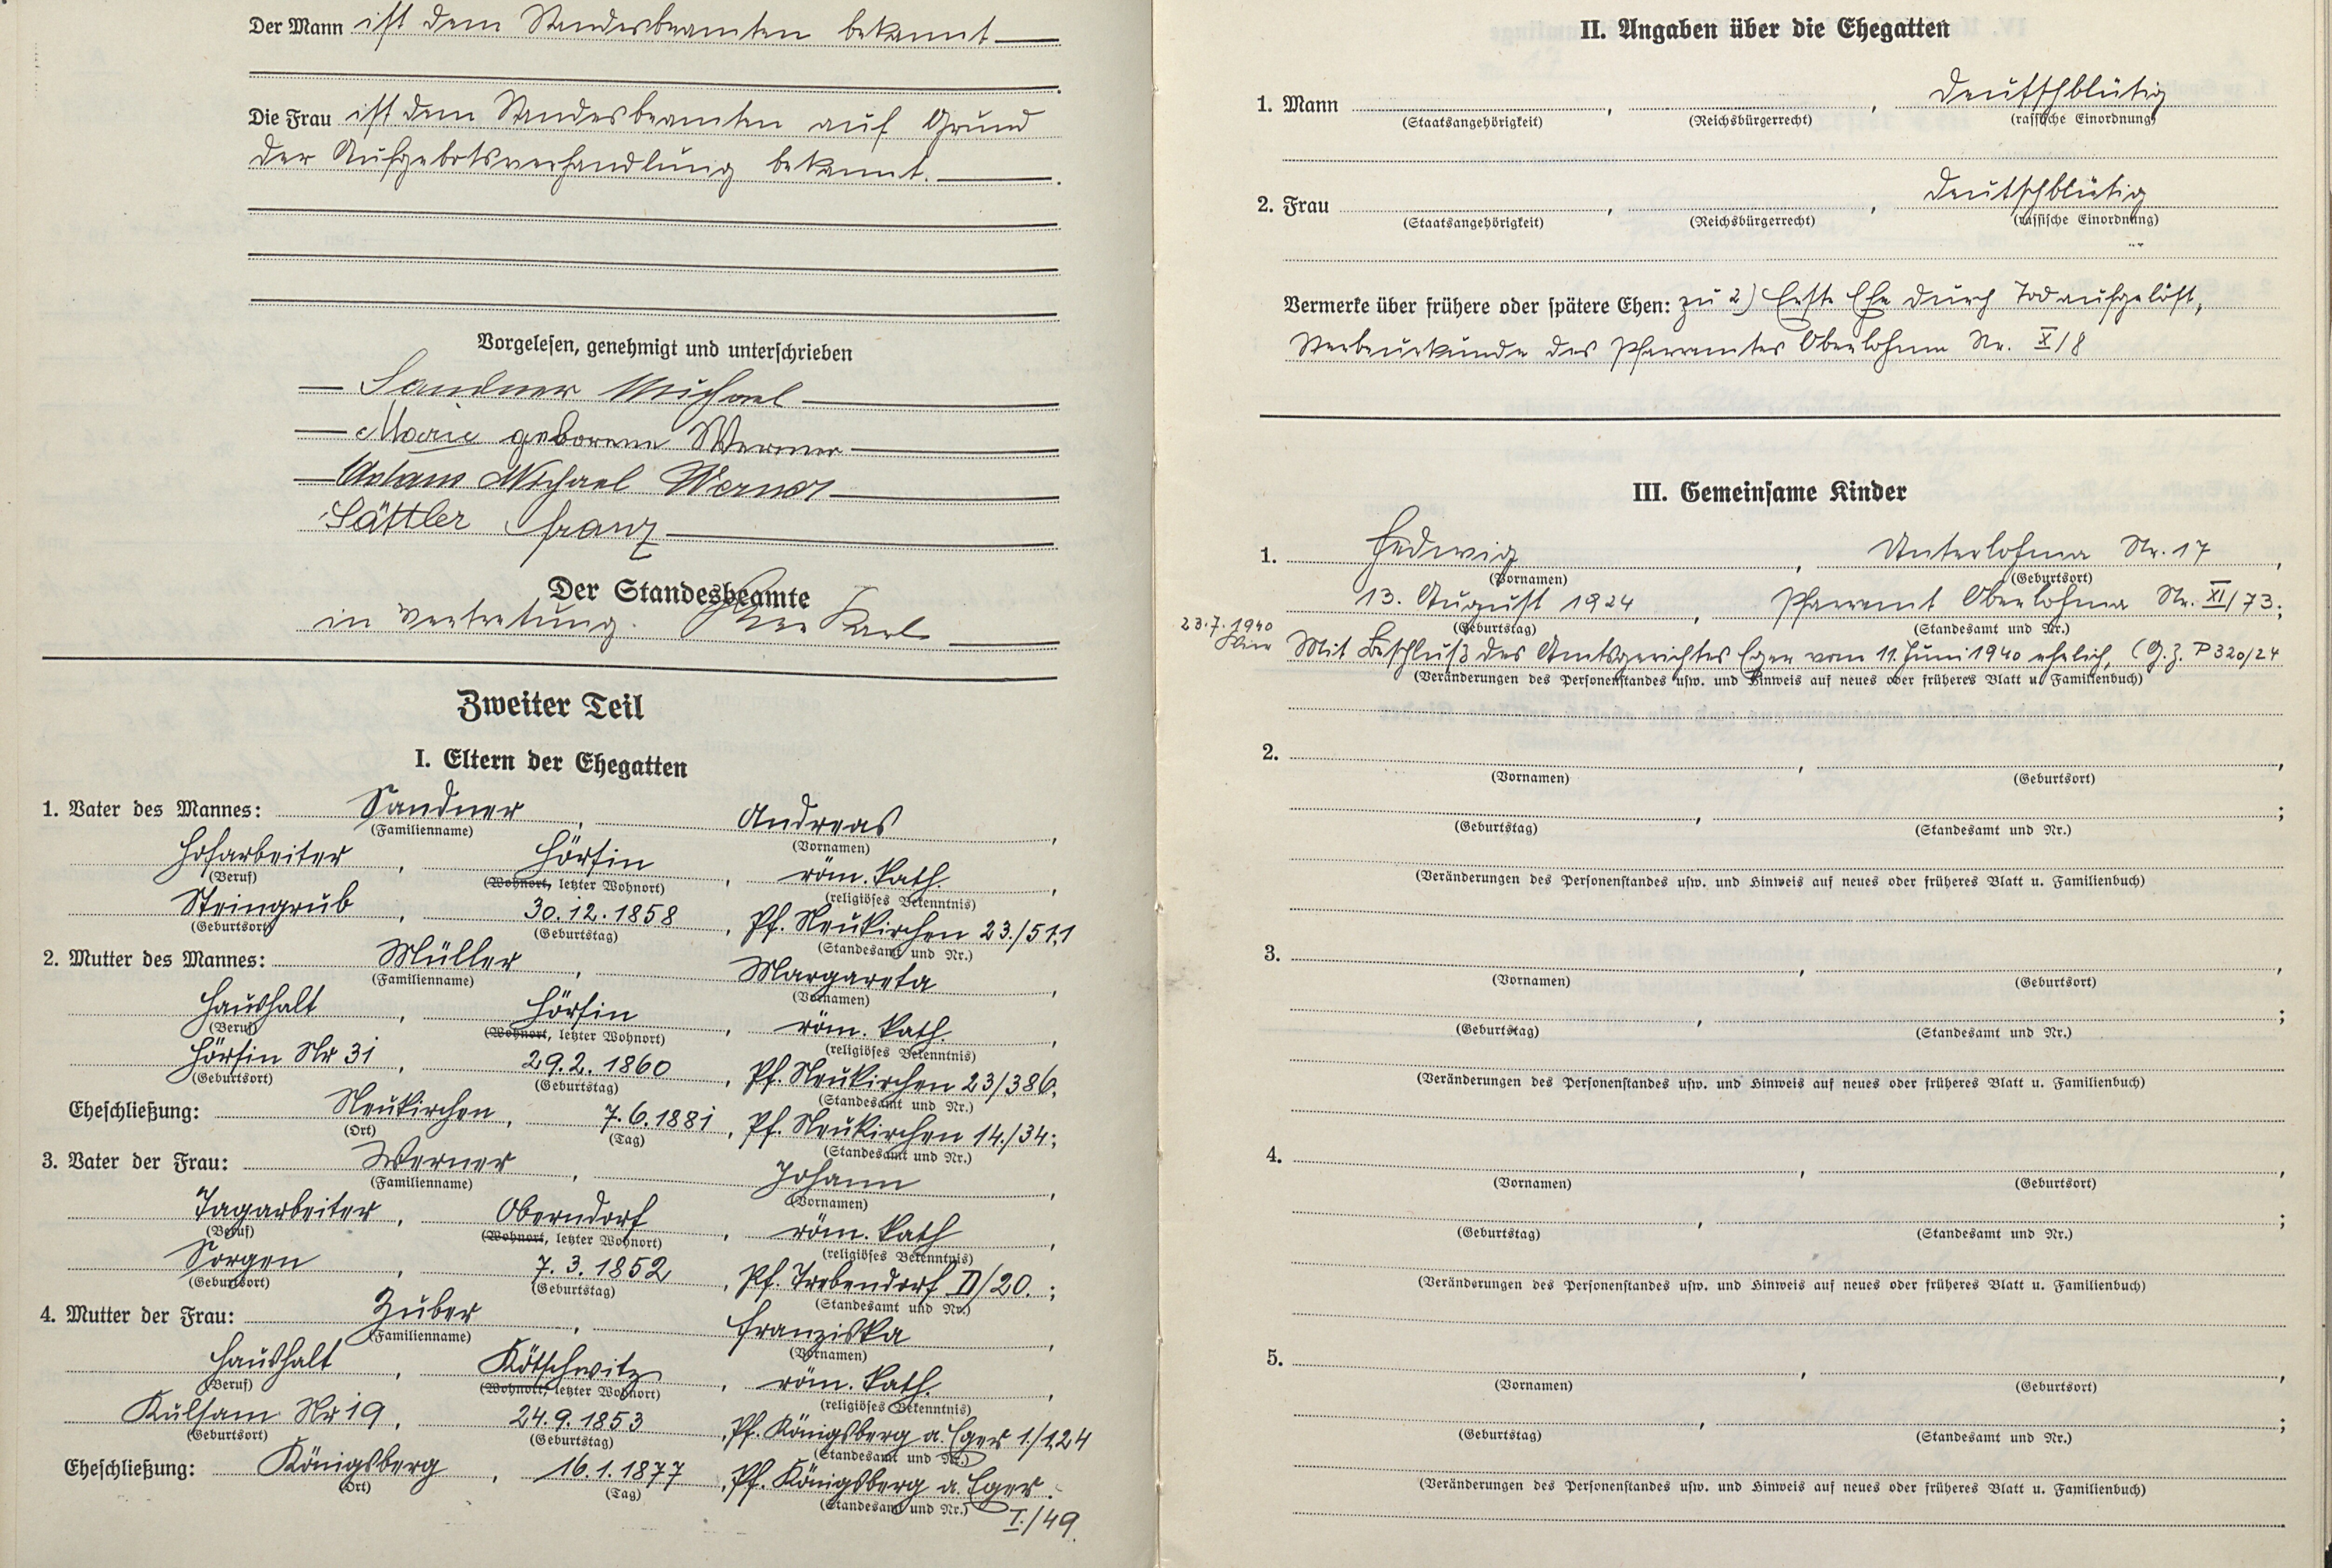 Der Mann ist dem Standesbeamten bekannt
Die Frau ist dem Standesbeamten auf Grund
der Aufgebotsverhandlung bekannt.
Vorgelesen, genehmigt und unterschrieben
Sandner Michael
Marie geborene Werner
Michael Werner
Sättler Franz
Der Standesbeamte
in Vertretung. Karl
Zweiter Teil
I. Eltern der Ehegatten
1. Vater des Mannes: Sandner, Andreas,
(Familienname) (Vornamen)
Hofarbeiter, Hörsin, röm. kath.,
(Beruf) (Wohnort, letzter Wohnort) (religiöses Bekenntnis)
Steingrub, 30.12.1858, Pf. Neukirchen 23./511
(Geburtsort) (Geburtstag) (Standesamt und Nr.)
2. Mutter des Mannes: Müller, Margareta,
(Familienname) (Vornamen)
Haushalt, Hörsin, röm. kath.,
(Beruf) (Wohnort, letzter Wohnort) (religiöses Bekenntnis)
Hörsin Nr 31, 29.2.1860, Pf. Neukirchen 23/386;
(Geburtsort) (Geburtstag) (Standesamt und Nr.)
Eheschließung: Neukirchen, 7.6.1881, Pf. Neukirchen 14./34;
(Ort) (Tag) (Standesamt und Nr.)
3. Vater der Frau: Werner, Johann,
(Familienname) (Vornamen)
Tagarbeiter, Oberndorf, röm. kath,
(Beruf) (Wohnort, letzter Wohnort) (religiöses Bekenntnis)
Sorgen, 7.3.1852, Pf. Trebendorf II/20.;
(Geburtsort) (Geburtstag) (Standesamt und Nr.)
4. Mutter der Frau: Zuber, Franziska,
(Familienname) (Vornamen)
Haushalt, Kötschwitz, röm. kath.,
(Beruf) (Wohnort, letzter Wohnort) (religiöses Bekenntnis)
Kulsam Nr 19, 24.9.1853, Pf. Königsberg a. Eger 1./124
(Geburtsort) (Geburtstag) (Standesamt und Nr.)
Eheschließung: Königsberg, 16.1.1877, Pf. Königsberg a. Eger.
(Ort) (Tag) (Standesamt und Nr.)
I./49.
II. Angaben über die Ehegatten
1. Mann , , deutschblütig
(Staatsangehörigkeit) (Reichsbürgerrecht) (rassische Einordnung)
2. Frau , , deutschblütig
(Staatsangehörigkeit) (Reichsbürgerrecht) (rassische Einordnung)
Vermerke über frühere oder spätere Ehen: zu 2) Erste Ehe durch Tod aufgelöst,
Sterbeurkunde des Pfarramtes Oberlohma Nr. X/8
III. Gemeinsame Kinder
1. Hedwig, Unterlohma Nr. 17,
(Vornamen) (Geburtsort)
13. August 1924, Pfarramt Oberlohma Nr. XI/73;
(Geburtstag) (Standesamt und Nr.)
23.7.1940
Mit Beschluß des Amtsgerichtes Eger vom 11. Juni 1940 ehelich, (G.Z. P 320/24
(Veränderungen des Personenstandes usw. und Hinweis auf neues oder früheres Blatt u. Familienbuch)
2. , ,
(Vornamen) (Geburtsort)
, ;
(Geburtstag) (Standesamt und Nr.)
(Veränderungen des Personenstandes usw. und Hinweis auf neues oder früheres Blatt u. Familienbuch)
3. , ,
(Vornamen) (Geburtsort)
, ;
(Geburtstag) (Standesamt und Nr.)
(Veränderungen des Personenstandes usw. und Hinweis auf neues oder früheres Blatt u. Familienbuch)
4. , ,
(Vornamen) (Geburtsort)
, ;
(Geburtstag) (Standesamt und Nr.)
(Veränderungen des Personenstandes usw. und Hinweis auf neues oder früheres Blatt u. Familienbuch)
5. , ,
(Vornamen) (Geburtsort)
, ;
(Geburtstag) (Standesamt und Nr.)
(Veränderungen des Personenstandes usw. und Hinweis auf neues oder früheres Blatt u. Familienbuch)